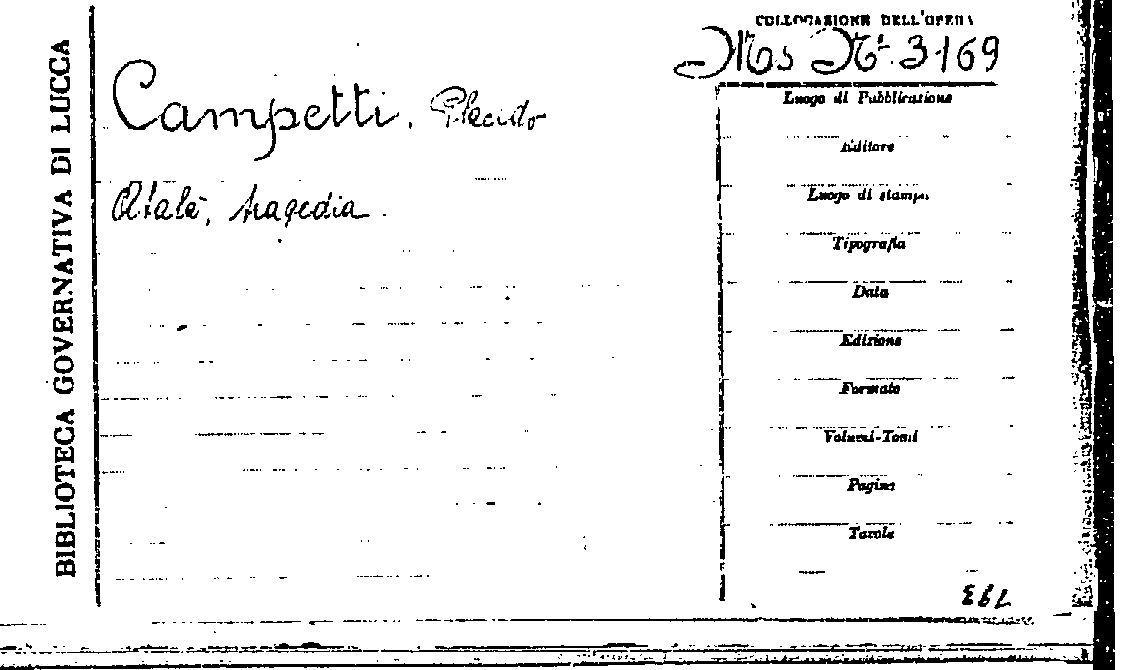 BIBLIOTECA GOVERNATIVA DI LUCCA
COLLOCAZIONE DELL'OPERA
Ms Nº 3169
Campetti. Placido
Atalè, tragedia.
Luogo di Pubblicazione
Editore
Luogo di stampa
Tipografia
Data
Edizione
Formato
Volumi-Tomi
Pagine
Tavole
793